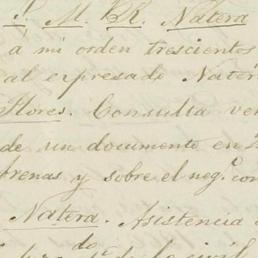 P. M. R. Natera
á mi orden trescientos
al expresado Nater
Flores. Consulta ver
de un documento en
brenas y sobre el neg.º con
Natera. Asistencia
do
de lo civil